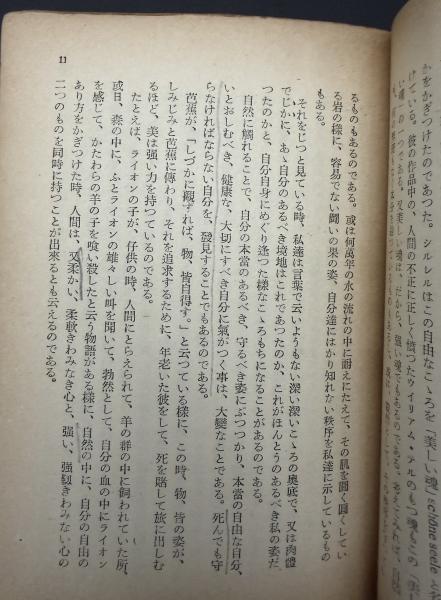 かをかぎつけたのであつた。シルレルはこの自由なこゝろを「美しい魂」schöne seele
けている。彼の作品中の、人間の不正に正しく憤つたウイリアム・テルのもつ魂もこの
るものもあるのである。或は何萬年の水の流れの中に耐えにたえて、その肌を圓く圓くしてい
る岩の樣に、容易でない鬪いの果の姿、自分達にはかり知れない秩序を私達に示しているもの
もある。
それをじつと見ている時、私達は言葉で云いようもない深い深いこゝろの奥底で、又は肉體
でじかに、あゝ自分のあるべき境地はこれであつたのか、これがほんとうのあるべき私の姿だ
つたのかと、自分自身にめぐり逢つた樣なこゝろもちになることがあるのである。
自然に觸れることで、自分の本當のあるべき、守るべき姿にぶつつかり、本當の自由な自分、
いとおしむべき、健康な、大切にすべき自分に氣がつく事は、大變なことである。死んでも守
らなければならない自分を、發見することでもあるのである。
芭蕉が、「しづかに觀ずれば、物、皆自得す。」と云つている樣に、この時、物、皆の姿が、
しみじみと芭蕉に傳わり、それを追求するために、年老いた彼をして、死を賭して旅に出しむ
るほど、美は强い力を持つているのである。
たとえば、ライオンの子が、仔供の時、人間にとらえられて、羊の群の中に飼われていた所、
或日、森の中に、ふとライオンの雄々しい叫を聞いて、勃然として、自分の血の中にライオン
を感じて、かたわらの羊の子を喰い殺したと云う物語がある樣に、自然の中に、自分の自由の
あり方をかぎつけた時、人間は、又柔かい、柔軟きわみなき心と、强い、强靱きわみない心の
二つのものを同時に持つことが出來るとも云えるのである。
11